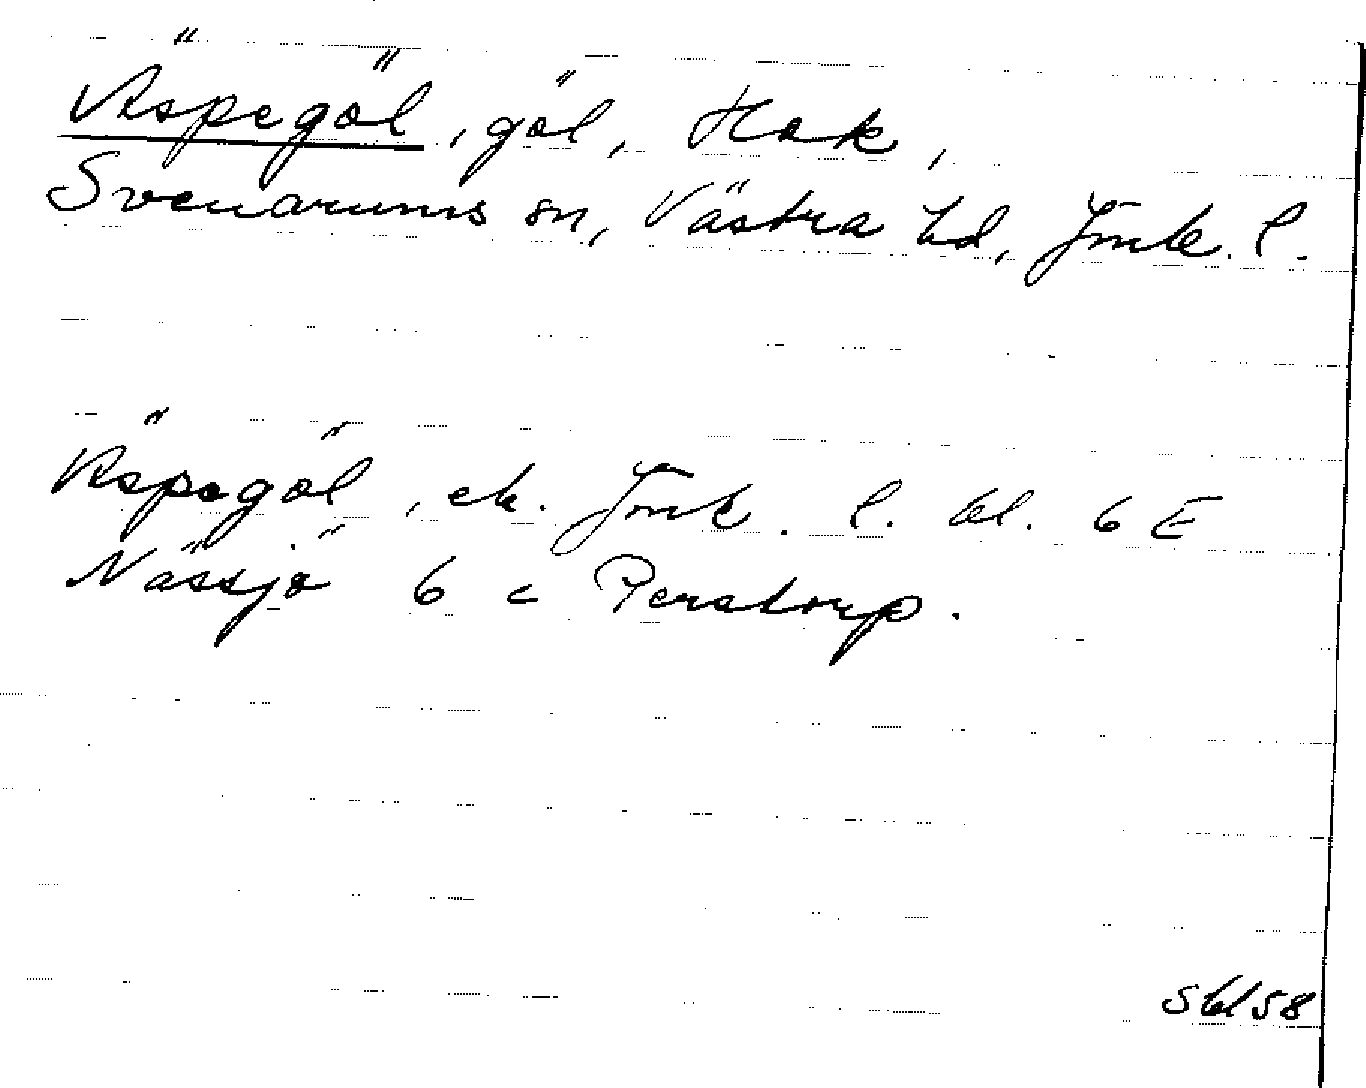 Äspegöl, göl, Hok,
Svenarums sn, Västra hd, Jmk. l.
Äspagöl, ek. Jmk. l. bl. 6 E
Nässjö 6 c Perstorp.
Sbl58